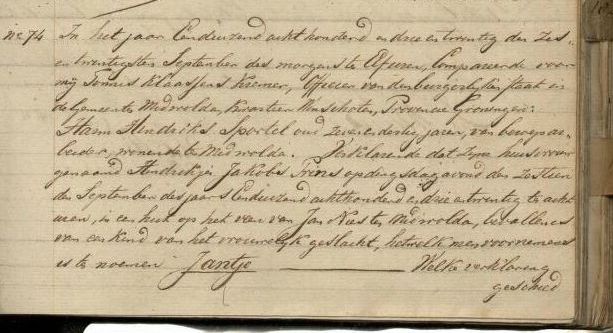 No 74 In het jaar Eenduizend achthonderd en drie en twintig den zes-
en twintigsten September des morgens te Elf uren, Compareerde voor
mij Tonnis Klaassens Kremer, Officier van den burgerlijken staat in
de Gemeente Midwolda, Kwartier Winschoten, Provincie Groningen:
Harm Hendriks Sportel oud Zeven en dertig jaren, van beroep ar-
beider, wonende te Midwolda. Verklarende dat zijne huisvrouw
genaamd Hendrikje Jakobs Prins op dingsdag avond den Zestien
den September des jaars Eenduizend achthonderd en drie en twintig te acht
uren, in een huis op het veen van Jan Nies te Midwolda, bevallen is
van een Kind van het vrouwelijk geslacht, hetwelk men voornemens
is te noemen Jantje ——— Welke verklaring
geschied